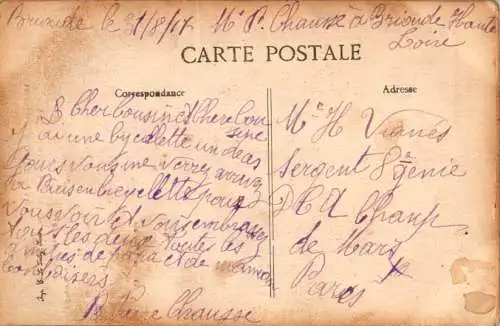 Brioude le 21/8/17 Mr P. Chausse à Brioude Haute
Loire
CARTE POSTALE
Correspondance
Adresse
Cher Cousin et Chere Cousine
j'ai une bycelette un de ces
jours vous me verrez arriver
en bycelette pour
vous voir et vous embrasser
tous les deux toutes les
de papa et de maman
Pierre Chausse
Mr H Vianès
Sergent 8e genie
D C A Champ
de Mars
Paris